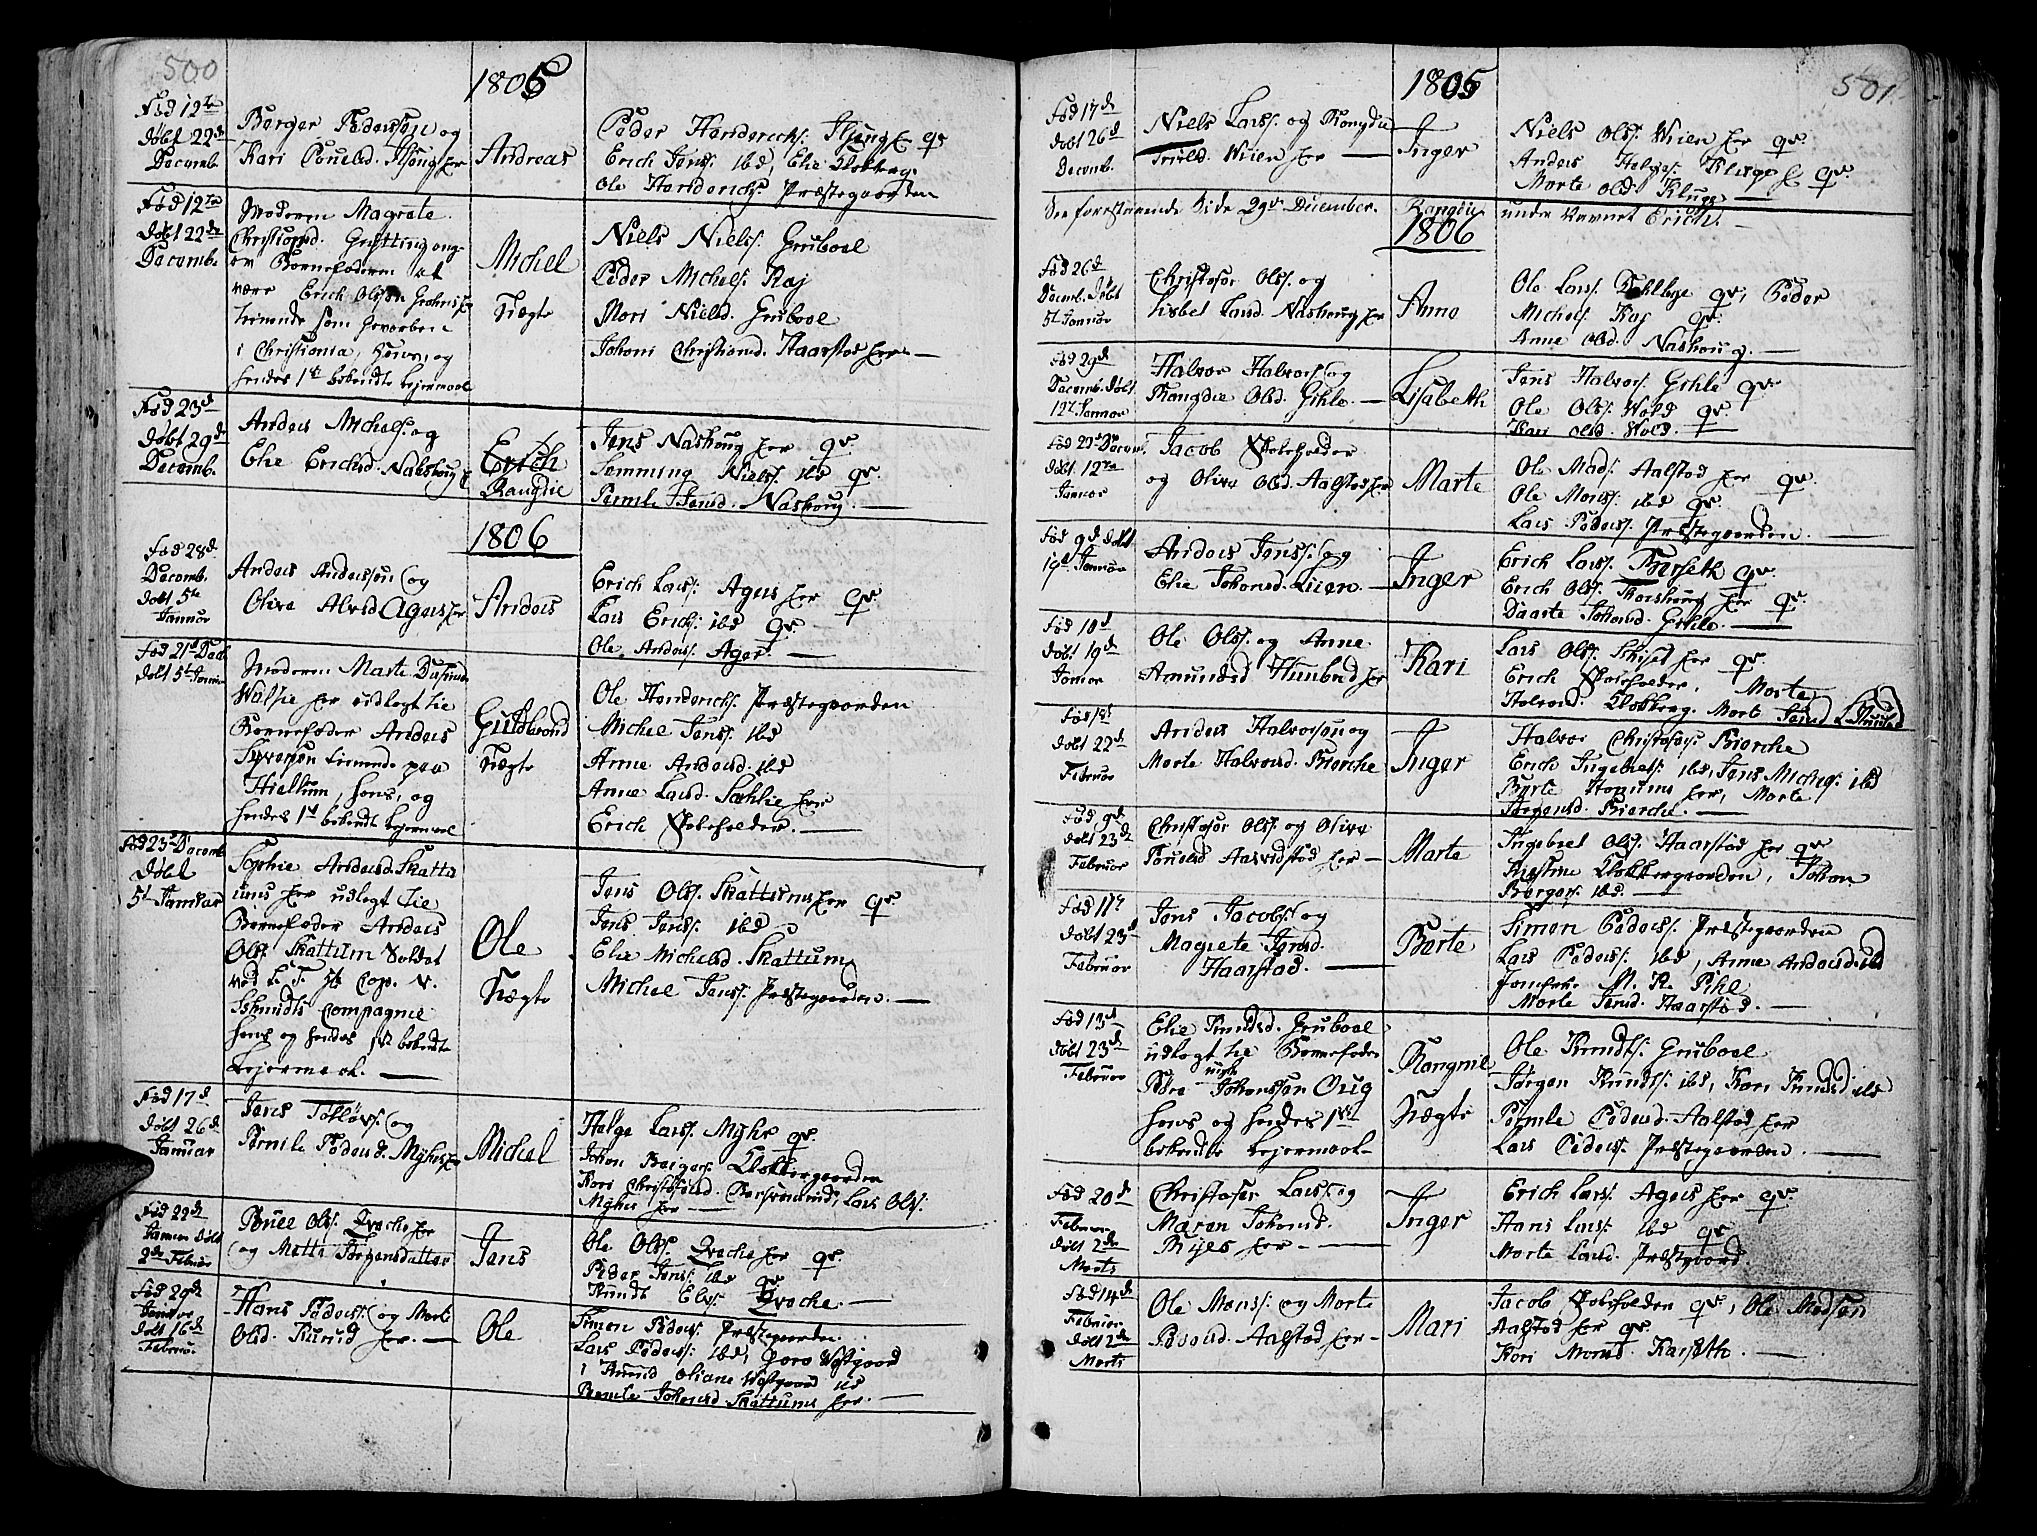 500
1805
Fød 12te
døbt 22d
Decemb.
Børger Pedersøn og
Kari Povelsd.
Andreas
Peder Handerichs. qv.
Erich Jens. ibd, Elie Klokberg.
Ole Handerichs. Præstegaarden
Fød 12te
døbt 22de
Decemb.
Moderen Magrete
Christiansd. Gretting ang-
er Barnefaderen at
være Erich Olsøn
tienende som Geverben
i Christiania, hans, og
hendes 1te bekendte lejermaal
Michel
Uægte
Niels Niels. Grubael
Peder Michels. Kaj
Mari Nielsd. Grubael
Johani Christiansd. Haarstad eier —
Fød 23d
døbt 29de
Decemb.
Anders Michels. og
Elie Erichsd. Nashoug
Erich
Rangdie
Jens Nashoug eier qv.
Semming Niels. ibd qv.
Pernille Hansd. Nashoug. —
1806
Fød 28d
Decemb.
døbt 5te
Januar
Anders Andersøn og
Oliva Alvsd Ager eier
Anders
Erich Lars. Ager eier qv
Lars Erichs. ibd qv.
Ole Anders. Ager. —
Fød 21d Dec
døbt 5t Januar
Moderen Marte
eier udlegt til
Barnefader Anders
Syversøn tienende paa
Hiellum, hans, og
hendes 1t bekendt lejermaal
Guldbrand
Uægte
Ole Handerichs. Præstegaarden
Michel Jens. ibd
Anne Andersd. ibd
Anne Larsd. Sæhlie eier
Erich Skoleholder. —
Fød 23d Decemb
Døbt
5t Januar
Sophie Andersd. Skattu
ums eier udlegt til
Barnefader Anders
Ols. Skattum Soldat
ved
Schmidts Compagnie
hans og hendes 1te bekendte
Lejermaal. —
Ole
Uægte
Jens Ols. Skattums eier qv
Jens Jens. ibd
Elie Michelsd. Skattum
Michel Jens. Præstegaarden. —
Fød 17d
døbt 26d
Januar
Jens Tolløvs. og
Pernile Pedersd. Myhrs eier
Michel
Helge Lars. Myhr qv.
Johan Børgers. Klokkergaarden
Kari Christofersd. Lars Ols.
Myhr eier —
Fød 22de
Januar døbt
9de Februar
Povel Ols. Qvæche eier
og Mette Jørgensdatter
Jens
Ole Ols. Qvæche eier qv.
Peder Jens. ibd qv.
Knudt Elvs. Qvæche. —
Fød 29de
Januar
døbt 16d
Februar
Hans Peders. og Marte
Olsd. Hunsd eier. —
Ole
Simen Peders. Præstegaarden
Lars Peders. ibd, Goro Westgaard
i Hunsd Oliane Westgaard ibd
Pernile Johansd. Skattums eier. —
501.
1805
Fød 17d
døbt 26d
Decemb.
Niels Lars. og Rangdie
Truld. Wien eier —
Inger
Niels Ols. Wien eier qv.
Anders Helges. Kluge eier qv.
Marte Olsd. Kluge. —
See forestaaende Side 29de December. Rangdie under Navnet Erich. —
1806
Fød 26d
Decemb. Døbt
5t Januar
Christofer Ols. og
Lisbet Larsd. Nashoug eier
Anne
Ole Lars. qv, Peder
Michels. Kaj qv.
Anne Olsd. Nashoug. —
Fød 29d
Decemb. Døbt
12t Januar
Halvor Halvors. og
Rangdie Olsd. Gihle. —
Lisabeth
Jens Halvors. Gihle qv.
Ole Ols. Wold qv.
Kari Olsd. Wold. —
Fød 29d Decemb.
døbt 12te
Januar
Jacob Skoleholder
og Oliva Olsd. Aalstad eier
Marte
Ole Mads. Aalstad eier qv.
Ole Mons. ibd qv.
Lars Peders. Præstegaarden. —
Fød 9d døbt
19d. Januar
Anders Jens. og
Elie Johansd. Lien. —
Inger
Erich Lars. Berseth qv.
Erich Ols. Torshoug eier qv.
Daarte Johansd. Gihle. —
Fød 10d
døbt 19d
Januar
Ole Ols. og Anne
Amundsd Hunbnd eier
Kari
Lars Ols. eier qv.
Erich Skoleholder, Marte
Halvorsd. Klokberg. Marte Jensd
Fød 18d
døbt 22d
Februar
Anders Halvorsøn og
Marte Halvorsd. Biørche
Inger
Halvor Christofers. Biørche
Erich Ingebrets. ibd, Jens Michels. ibd
Berte eier, Marte
Jørgensd. Biørche. —
Fød 9d
døbt 23d
Februar
Christofer Ols. og Oliva
Povelsd Aasvidstad eier —
Marte
Ingebret Ols. Haarstad eier qv
Kirstine Klokkergaarden, Johan
Børgers. ibd. —
Fød 11t
døbt 23d
Februar
Jens Jacobs. og
Magrete Jensd.
Haarstad. —
Berte
Simen Peders. Præstegaarden
Lars Peders. ibd, Anne Andersd. ibd
Jomfrue M. R. Pihl
Marte Jensd. Haarstad. —
Fød 13d
døbt 23d
Februar
Elie Knudsd. Grubael
udlegt til Barnefader
Johansøn Oug
hans og hendes 1ste
bekendte Lejermaal —
Rangnil
Uægte
Ole Knudts. Grubael
Jørgen Knudts. ibd, Kari Knudsd ibd
Pernile Pedersd. Aalstad eier
Lars Peders. Præstegaarden. —
Fød 20d
Februar
døbt 2de
Marts
Christofer Lars. og
Maren Johansd.
Byes eier. —
Inger
Erich Lars. Ager eier qv.
Hans Lars. ibd qv
Marte Larsd. Præstegaard.
Fød 14d
Februar
døbt 2de
Marts
Ole Mons. og Marte
Pedersd. Aalstad eier —
Mari
Jacob Skoleholder qv, Ole Madsøn
Aalstad eier qv.
Kari Monsd. Karseth. —